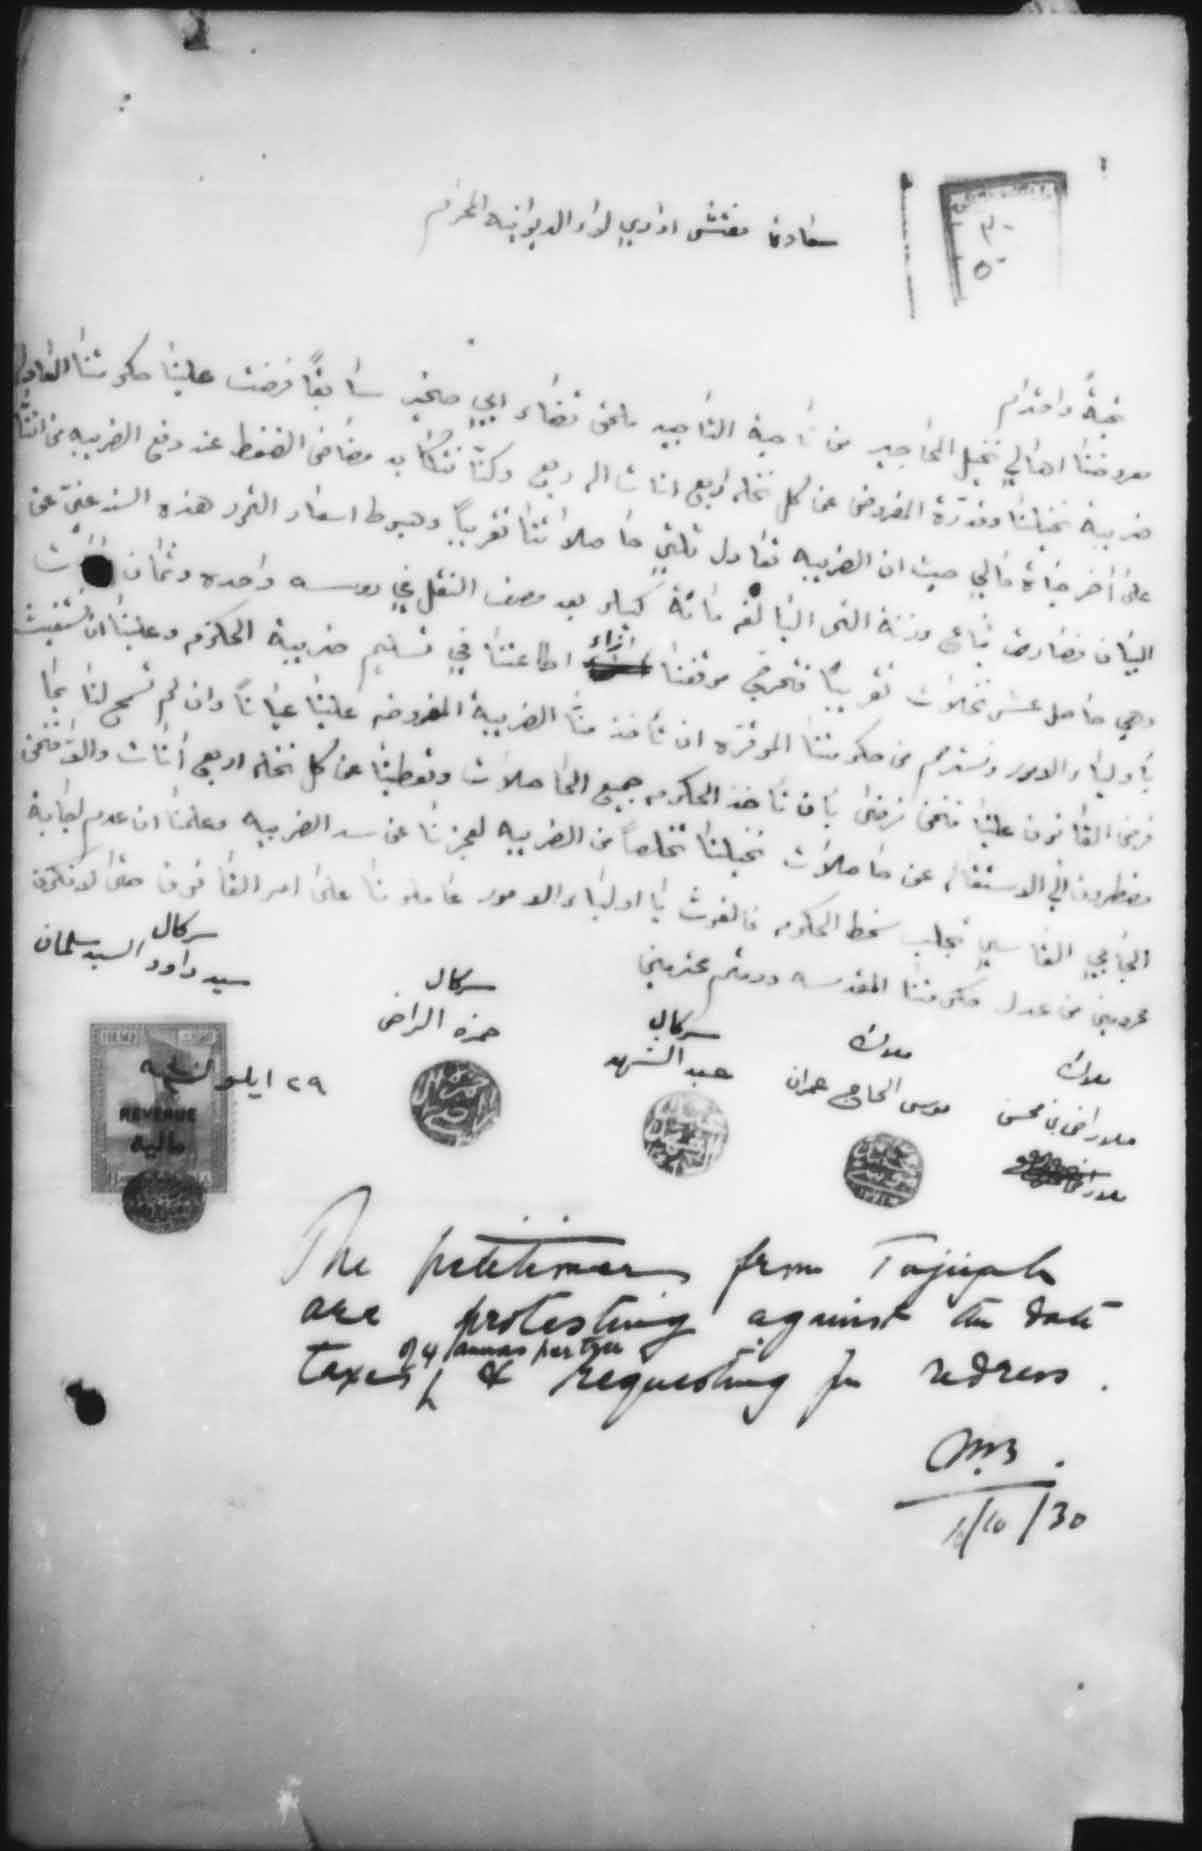 ٣٠
٥٠
سعادة مفتش اداري لواء الديوانيه المحترم
تحية واحترام
معروضنا اهالي نخيل من ناحية التاجيه ملحق قضاء ابي صخير سابقاً فرضت علينا حكومتنا العادله
ضريبة نخيلنا وقدرة المفروض عن كل نخله اربع انات الا ربع وكنا نتكابد مضاض الضغط عند دفع الضريبه
على آخر حيث ان الضريبه تعادل ثلثي حاصلاتنا تقريباً وهبوط اسعار التمور هذه السنه غني عن
البيان فصارت تباع وزنة التمر البالغه مائة كيلو بعد مصرف النقل في روبيه واحده وثمان انات
وهي حاصل عشر نخلات تقريباً فتحرج موقفنا ازاء اطاعتنا في تسليم ضريبة الحكومه وعلينا ان نستغيث
بأولياء الامور ونسترحم من حكومتنا الموقره ان تأخذ منا الضريبة المفروضه علينا عياناً وان لم تسمح لنا بما
فرض القانون علينا فنحن نرضى بان تاخذ الحكومه جميع الحاصلات وتعطينا عن كل نخله اربع انات والا فنحن
مضطرون الى الاستقاله عن حاصلات نخيلنا تخلصاً من الضريبه لعجزنا عن سد الضريبه وعلمنا ان عدم اجابة
الجابي القاسي تجلب سخط الحكومه فالغوث يا اولياء الامور عاملونا على امر القانون حتى لا نكون
محرومين من عدل حكومتنا المقدسه ودمتم محترمين
ملاك
ملا راضي بن محسن
ملاك
موسى الحاج عمران
سركال
عبد الشهد
سركال
حمزه الراضي
سركال
سيد داود السيد سلمان
٢٩ ايلول سنه
REVENUE
مالية
The petitioners from Tajiyah
are protesting against the date
taxes of 4 annas per tree & requesting for redress.
1/10/30